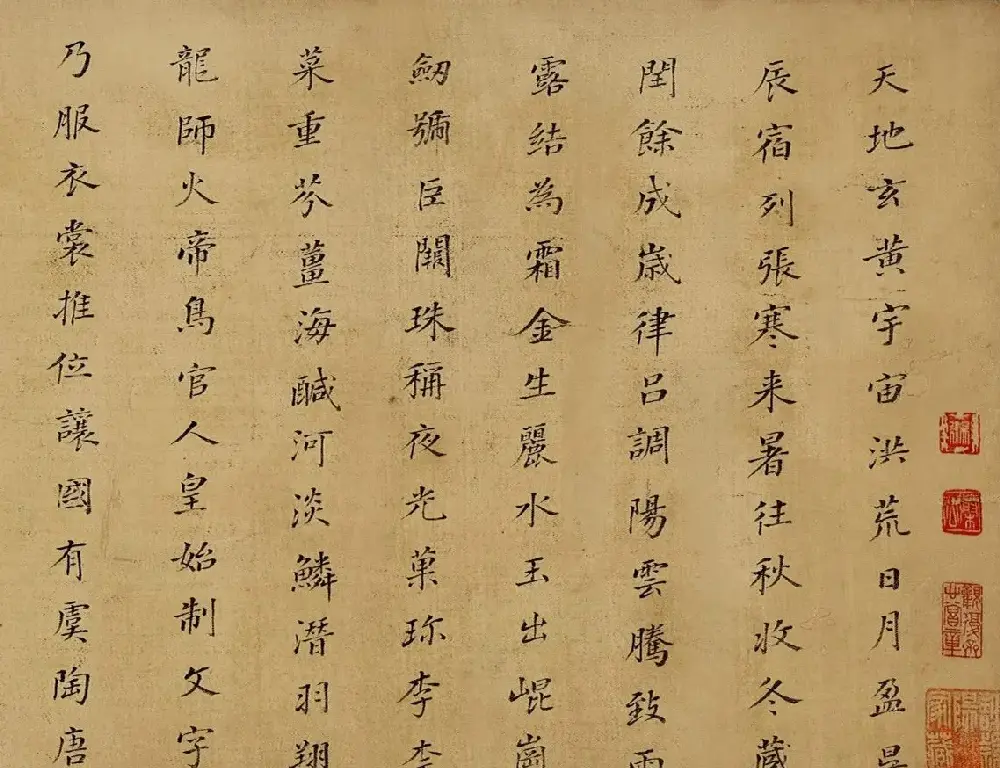 天地玄黃宇宙洪荒日月盈昃
辰宿列張寒来暑往秋收冬藏
閏餘成歲律吕調陽雲騰致雨
露結為霜金生麗水玉出崐崗
劒號臣闕珠稱夜光菓珎李柰
菜重芥薑海鹹河淡鱗潜羽翔
龍師火帝鳥官人皇始制文字
乃服衣裳推位讓國有虞陶唐